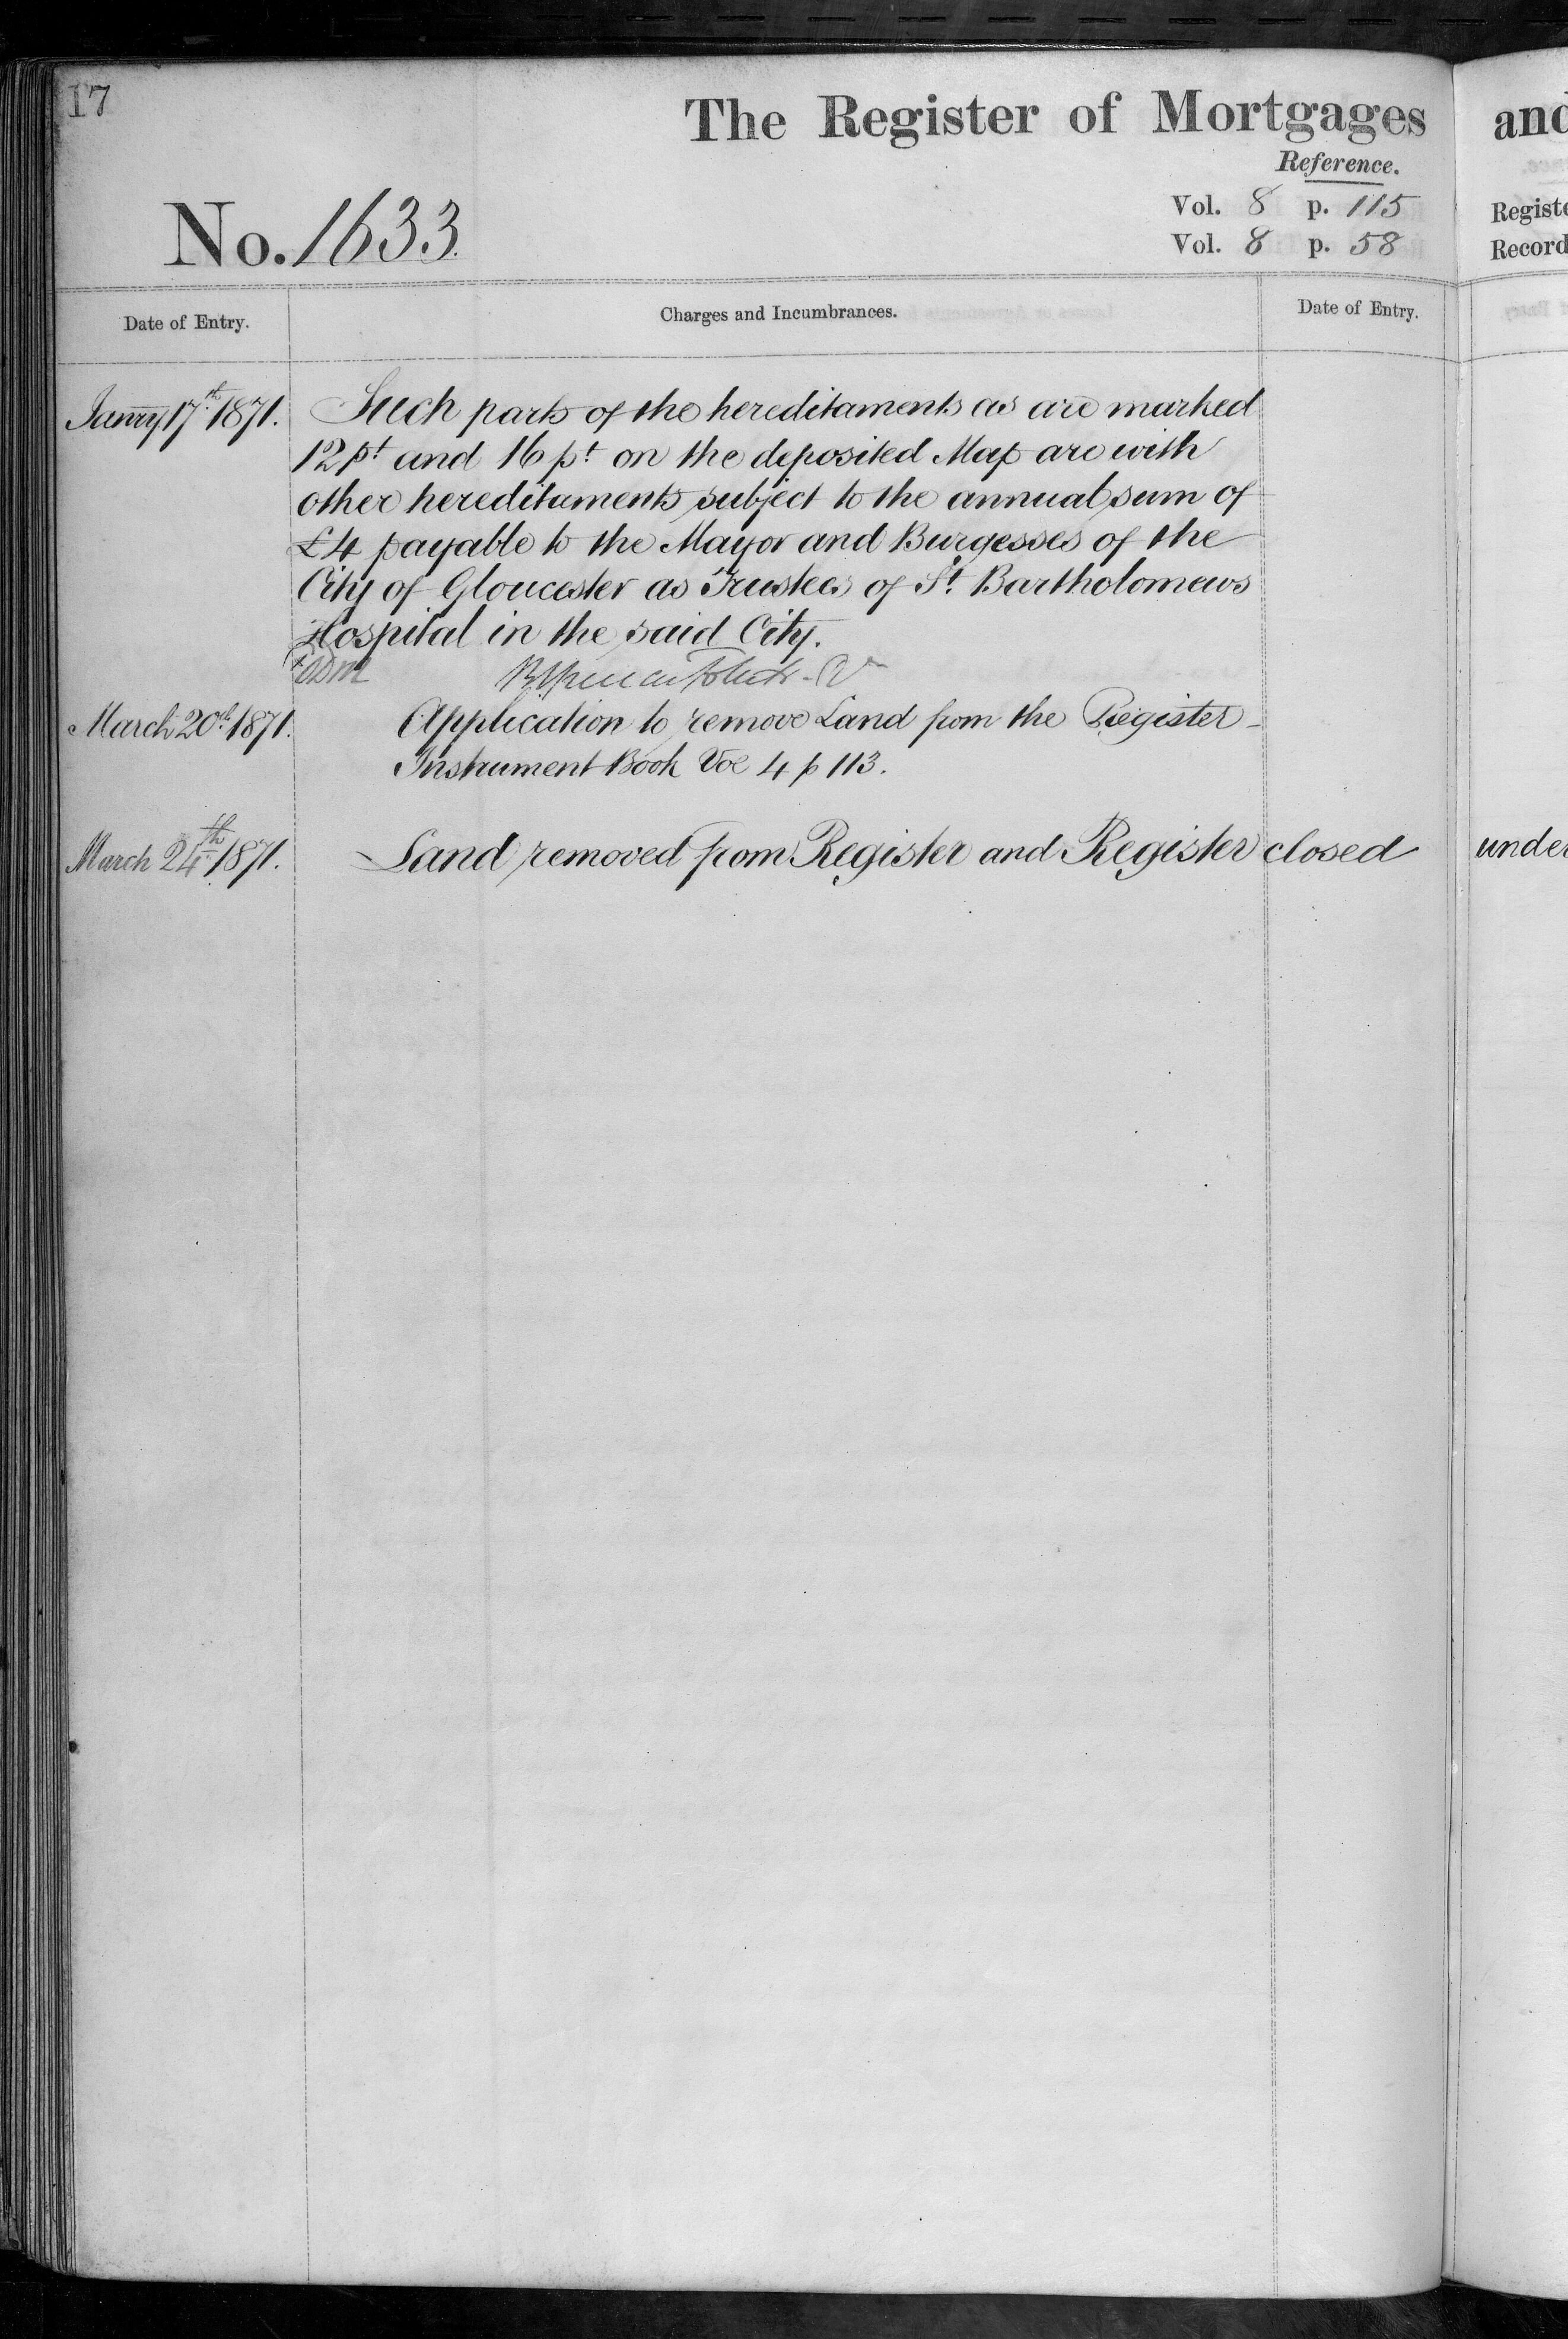 17
The Register of Mortgages and
Reference.
No. 1633.
Vol. 8 p. 115 Registe
Vol. 8 p. 58 Record
Date of Entry. Charges and Incumbrances. Date of Entry.
Janry 17th 1871. Such parts of the hereditaments as are marked
12 pt and 16 pt on the deposited Map are with
other hereditaments subject to the annual sum of
£4 payable to the Mayor and Burgesses of the
City of Gloucester as Trustees of St. Bartholomews
Hospital in the said City.
March 20th 1871. Application to remove Land from the Register
Instrument Book Vol 4 p 113.
March 24th 1871. Land removed from Register and Register closed under